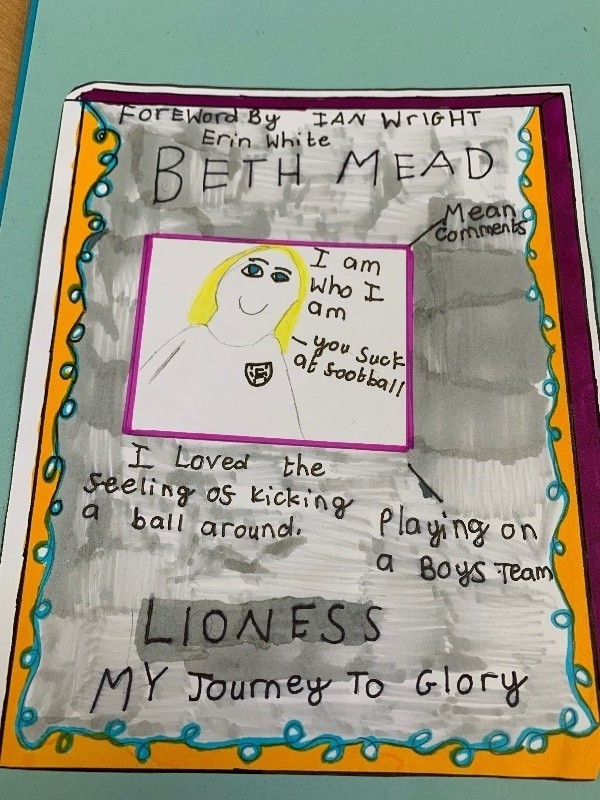 Foreword By IAN WRIGHT
Erin White
BETH MEAD
Mean
comments
I am
who I
am
- you suck
at football
I Loved the
feeling of kicking
a ball around.
Playing on
a Boys Team
LIONESS
MY Journey To Glory